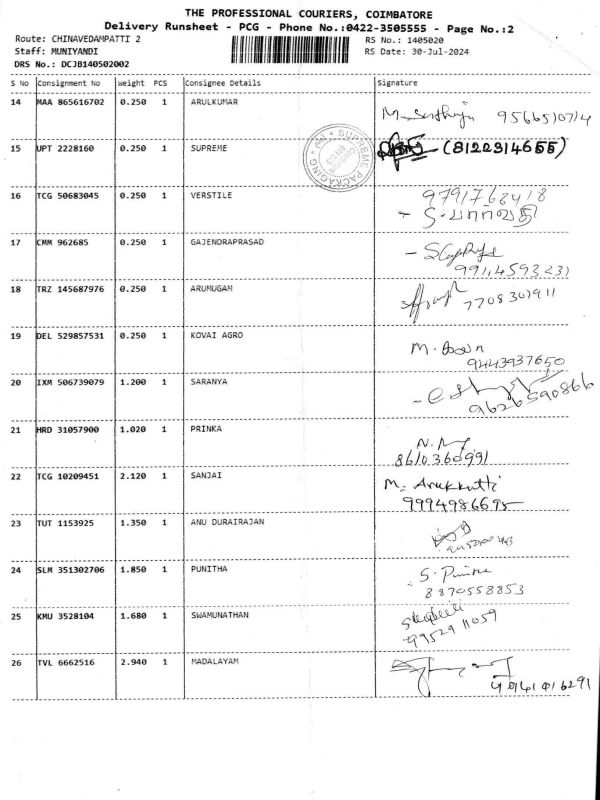 THE PROFESSIONAL COURIERS, COIMBATORE
Delivery Runsheet - PCG - Phone No.:0422-3505555 - Page No.:2
Route: CHINAVEDAMPATTI 2 RS No.: 1405020
Staff: MUNIYANDI RS Date: 30-Jul-2024
DRS No.: DCJB140502002
S No Consignment No Weight PCS Consignee Details Signature
14 MAA 865616702 0.250 1 ARULKUMAR
M. 9566510714
SUPREME PACKAGING
15 UPT 2228160 0.250 1 SUPREME (8122314655)
16 TCG 50683045 0.250 1 VERSTILE 9791768418
17 CMM 962685 0.250 1 GAJENDRAPRASAD
18 TRZ 145687976 0.250 1 ARUMUGAM
7708307911
19 DEL 529857531 0.250 1 KOVAI AGRO
M.
9443937650
20 IXM 506739079 1.200 1 SARANYA
9626590866
21 HRD 31057900 1.020 1 PRINKA
8610360991
22 TCG 10209451 2.120 1 SANJAI M. Arukkutti
9994986695
23 TUT 1153925 1.350 1 ANU DURAIRAJAN
24 SLM 351302706 1.850 1 PUNITHA S. Punitha
8870558853
25 KMU 3528104 1.680 1 SWAMUNATHAN
9952911059
26 TVL 6662516 2.940 1 MADALAYAM